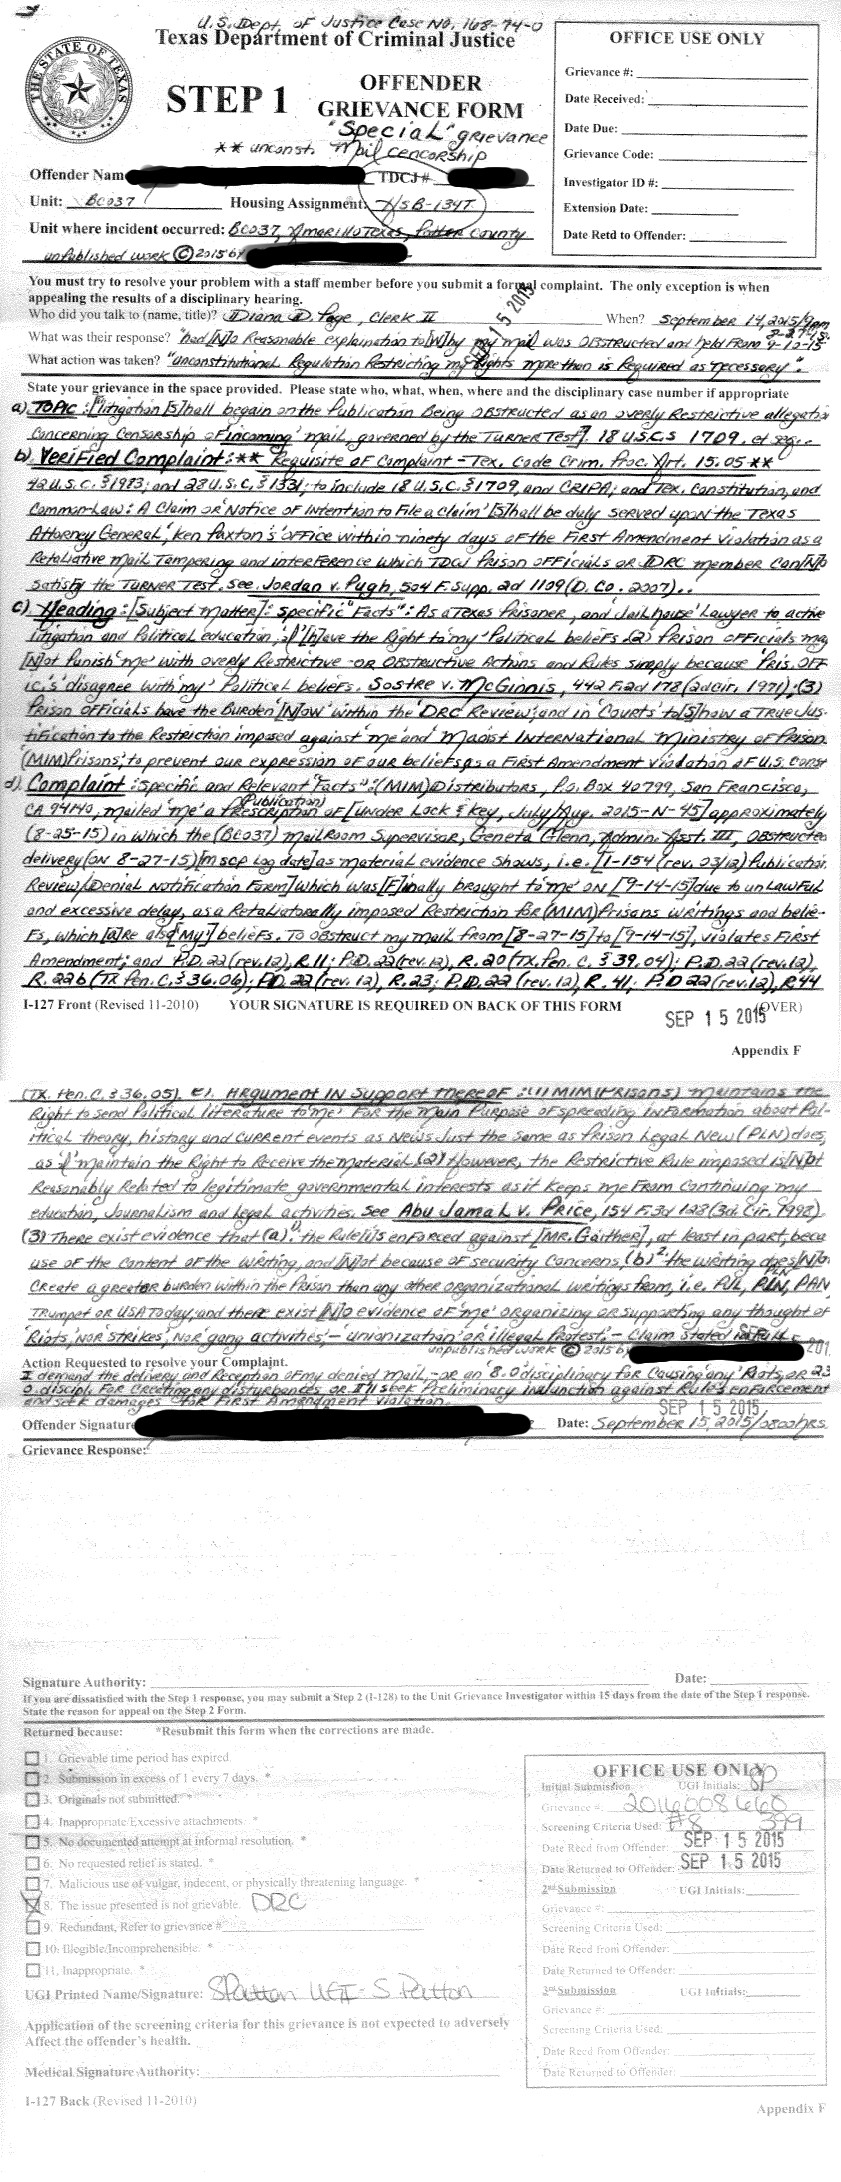 U.S. Dept. of Justice Case No. 168-74-0
Texas Department of Criminal Justice
THE STATE OF TEXAS
STEP 1
OFFENDER
GRIEVANCE FORM
"Special" grievance
** unconst. Mail cencorship
OFFICE USE ONLY
Grievance #:
Date Received:
Date Due:
Grievance Code:
Investigator ID #:
Extension Date:
Date Retd to Offender:
Offender Nam TDCJ #
Unit: BC037 Housing Assignment: H/SB-134T
Unit where incident occurred: BC037, Amarillo Texas, Potter County
unpublished work © 2015 by
You must try to resolve your problem with a staff member before you submit a formal complaint. The only exception is when
appealing the results of a disciplinary hearing.
Who did you talk to (name, title)? Diana D. Page, Clerk II When? September 14, 2015/
What was their response? "had [N]o Reasonable explaination to [W]hy my mail was OBstructed and held From 8-27-15
What action was taken? "unconstitutional Regulation Restricting my Rights more than is Required as necessary".
SEP 15 2015
State your grievance in the space provided. Please state who, what, when, where and the disciplinary case number if appropriate
a) TOPIC: [litigation [S]hall begain on the Publication Being OBstructed as an overly Restrictive allegation
concerning Censorship of 'incoming' mail, governed by the TURNER TEST]. 18 U.S.C.S 1709, et seq..
b) Verified Complaint: ** Requisite of Complaint - Tex. Code Crim. Proc. Art. 15.05 **
42 U.S.C. § 1983; and 28 U.S.C. § 1331; to include 18 U.S.C. § 1709, and CRIPA; and Tex. Constitution, and
Common-Law: A Claim or 'Notice of Intention to File a Claim' [S]hall be duly served upon the Texas
Attorney General, 'Ken Paxton's' office within ninety days of the First Amendment Violation as a
Retaliative Mail Tampering and interference which TDCJ Prison officials or DRC member Can[N]o
Satisfy the TURNER TEST. See. Jordan v. Pugh, 504 F. Supp. 2d 1109 (D. Co. 2007)..
c) Heading: [Subject Matter]: specific "Facts": As a Texas Prisoner, and 'Jailhouse' Lawyer to active
litigation and Political education, 'I' [h]ave the Right to 'my' Political beliefs. (2) Prison officials may
[N]ot Punish 'me' with overly Restrictive -OR OBstructive Actions and Rules simply because 'Pris. OFF
ic.'s' disagree with 'my' Political beliefs. Sostre v. McGinnis, 442 F.2d 178 (2d Cir. 1971); (3)
Prison officials have the Burden '[N]ow' within the 'DRC Review', and in 'Courts' to [S]how a TRUE Jus-
tification to the Restriction imposed against 'me' and Maoist International Ministry of Prison
(MIM) Prisons, to prevent our expression of our beliefs as a First Amendment Violation of U.S. Const
d) Complaint: Specific and Relevant "Facts": (MIM) Distributors, P.O. Box 40799, San Francisco,
CA 94140, mailed 'me' a Prescription of (Publication) [Under Lock & Key, July/Aug. 2015-N-45] approximately
(8-25-15) in which the (BC037) MailRoom Supervisor, Geneta Glenn, Admin. Asst. III, OBstructed
delivery (ON 8-27-15) [mscp Log date] as material evidence shows, i.e. [I-154 (rev. 03/12) Publication
Review/Denial Notification Form] which was [F]inally brought to 'me' ON [9-14-15] due to unLawFul
and excessive delay, as a Retaliatorally imposed Restriction for (MIM) Prisons writings and belie-
fs, which [a]Re also ['My'] beliefs. To OBstruct my mail from [8-27-15] to [9-14-15], violates First
Amendment; and P.D. 22 (rev. 12), R. 11; P.D. 22 (rev. 12), R. 20 (TX. Pen. C. § 39.04); P.D. 22 (rev. 12),
R. 22b (TX Pen. C. § 36.06); P.D. 22 (rev. 12), R. 23; P.D. 22 (rev. 12), R. 41; P.D 22 (rev. 12), R. 44
I-127 Front (Revised 11-2010) YOUR SIGNATURE IS REQUIRED ON BACK OF THIS FORM (OVER)
SEP 15 2015
Appendix F
(TX. Pen. C. § 36.05). E). Argument IN Support thereof: (1) MIM (Prisons) maintains the
Right to send Political literature to 'me' For the main Purpose of spreading information about Pol-
itical theory, history and CURRENT events as News Just the same as Prison Legal New (PLN) does,
as 'I' maintain the Right to Receive the material. (2) However, the Restrictive Rule imposed is [N]ot
Reasonably Related to legitimate governmental interests as it keeps me From Continuing my
education, Journalism and legal activities. See Abu Jamal v. Price, 154 F.3d 128 (3d. Cir. 1998).
(3) There exist evidence that (a)¹ the Rule [i]s enforced against [MR. Gaither], at least in part, beca
use of the content of the writing, and [N]ot because of security Concerns, (b)² the writing does [N]o
Create a greator burden within the Prison than any other organizational writings from, i.e. PJL, PLN, PLN, PAN
Trumpet or USA Today, and there exist [N]o evidence of 'me' organizing or supporting any thought of
'Riots, NOR 'strikes, NOR gang activities', - 'unionization' or 'illegal Protest'. - Claim Stated in Full
unpublished work © 2015 by
Action Requested to resolve your Complaint.
I demand the delivery and Reception of my denied mail, - or an '8.0' disciplinary for causing 'any' Riots, or 23
.0 discipl. for creating any disturbances or I'll seek Preliminary injunction against Rule's enforcement
and seek damages for First Amendment Violation.
SEP 15 2015
Offender Signature Date: September 15, 2015/0800hrs
Grievance Response:
Signature Authority: Date:
If you are dissatisfied with the Step 1 response, you may submit a Step 2 (I-128) to the Unit Grievance Investigator within 15 days from the date of the Step 1 response.
State the reason for appeal on the Step 2 Form.
Returned because: *Resubmit this form when the corrections are made.
1. Grievable time period has expired.
2. Submission in excess of 1 every 7 days. *
3. Originals not submitted. *
4. Inappropriate/Excessive attachments. *
5. No documented attempt at informal resolution. *
6. No requested relief is stated. *
7. Malicious use of vulgar, indecent, or physically threatening language. *
8. The issue presented is not grievable. DRC
9. Redundant, Refer to grievance #
10. Illegible/Incomprehensible. *
11. Inappropriate. *
UGI Printed Name/Signature: SPatton UGI - S Patton
Application of the screening criteria for this grievance is not expected to adversely
Affect the offender's health.
Medical Signature Authority:
I-127 Back (Revised 11-2010)
OFFICE USE ONLY
Initial Submission UGI Initials: SP
Grievance #: 2016008660
Screening Criteria Used: #8 399
Date Recd from Offender: SEP 15 2015
Date Returned to Offender: SEP 15 2015
2nd Submission UGI Initials:
Grievance #:
Screening Criteria Used:
Date Recd from Offender:
Date Returned to Offender:
3rd Submission UGI Initials:
Grievance #:
Screening Criteria Used:
Date Recd from Offender:
Date Returned to Offender:
Appendix F